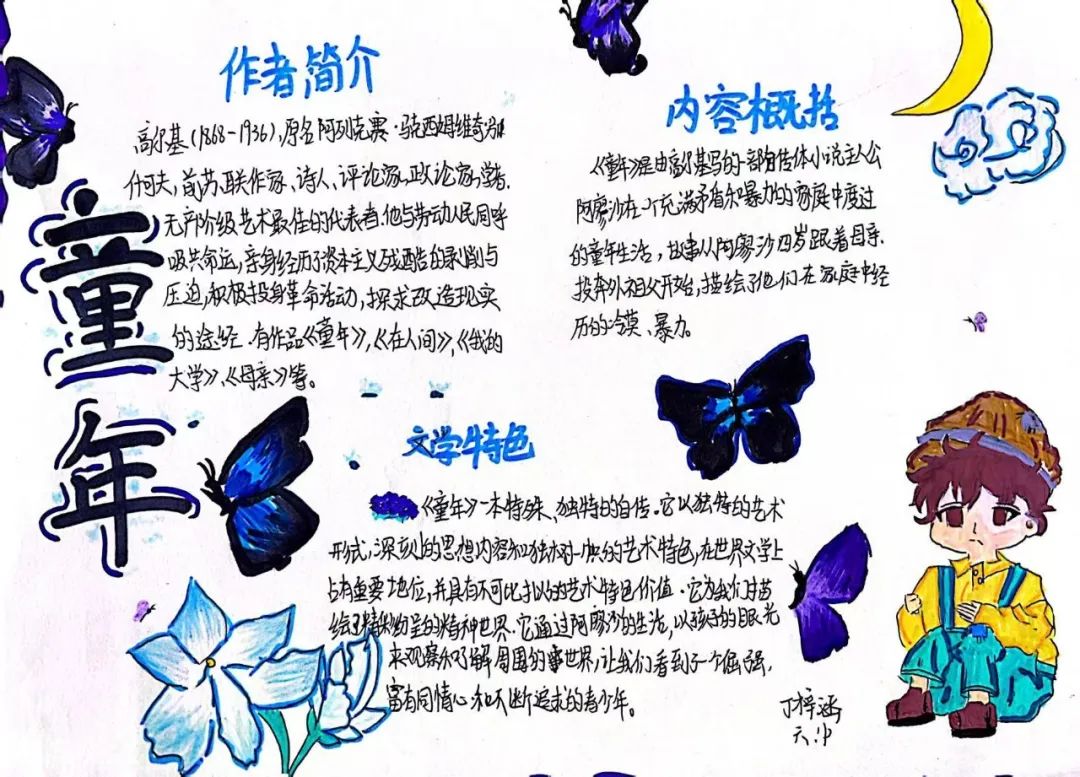 童年
作者简介
高尔基(1868-1936),原名阿列克赛·马克西姆维奇·
什可夫,前苏联作家、诗人、评论家,政论家,学者.
无产阶级艺术最佳的代表者.他与劳动人民同呼
吸共命运,亲身经历了资本主义残酷的剥削与
压迫,积极投身革命活动,探求改造现实
的途经.有作品《童年》,《在人间》,《我的
大学》、《母亲》等。
内容概括
《童年》是由高尔基写的一部自传体小说主人公
阿廖沙在一个充满矛盾和暴力的家庭中度过
的童年生活,故事从阿廖沙四岁跟着母亲
投奔外祖父开始,描绘了他们在家庭中经
历的冷莫、暴力。
文学特色
《童年》一本特殊、独特的自传.它以独特的艺术
形式,深刻的思想内容和独树一帜的艺术特色,在世界文学上
占有重要地位,并具有不可比拟的艺术特色价值.它为我们描
绘了精彩纷呈的精神世界.它通过阿廖沙的生活,以孩子的眼光
来观察和了解周围的世界,让我们看到了一个倔强,
富有同情心和不断追求的青少年。
丁梓涵